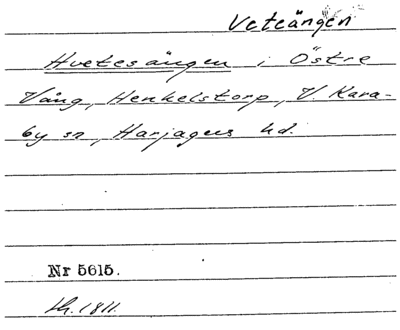 Veteängen
Hvetesängen i Östre
Vång, Henkelstorp, V. Kara-
by sn, Harjagers hd.
Nr 5615.
1811.